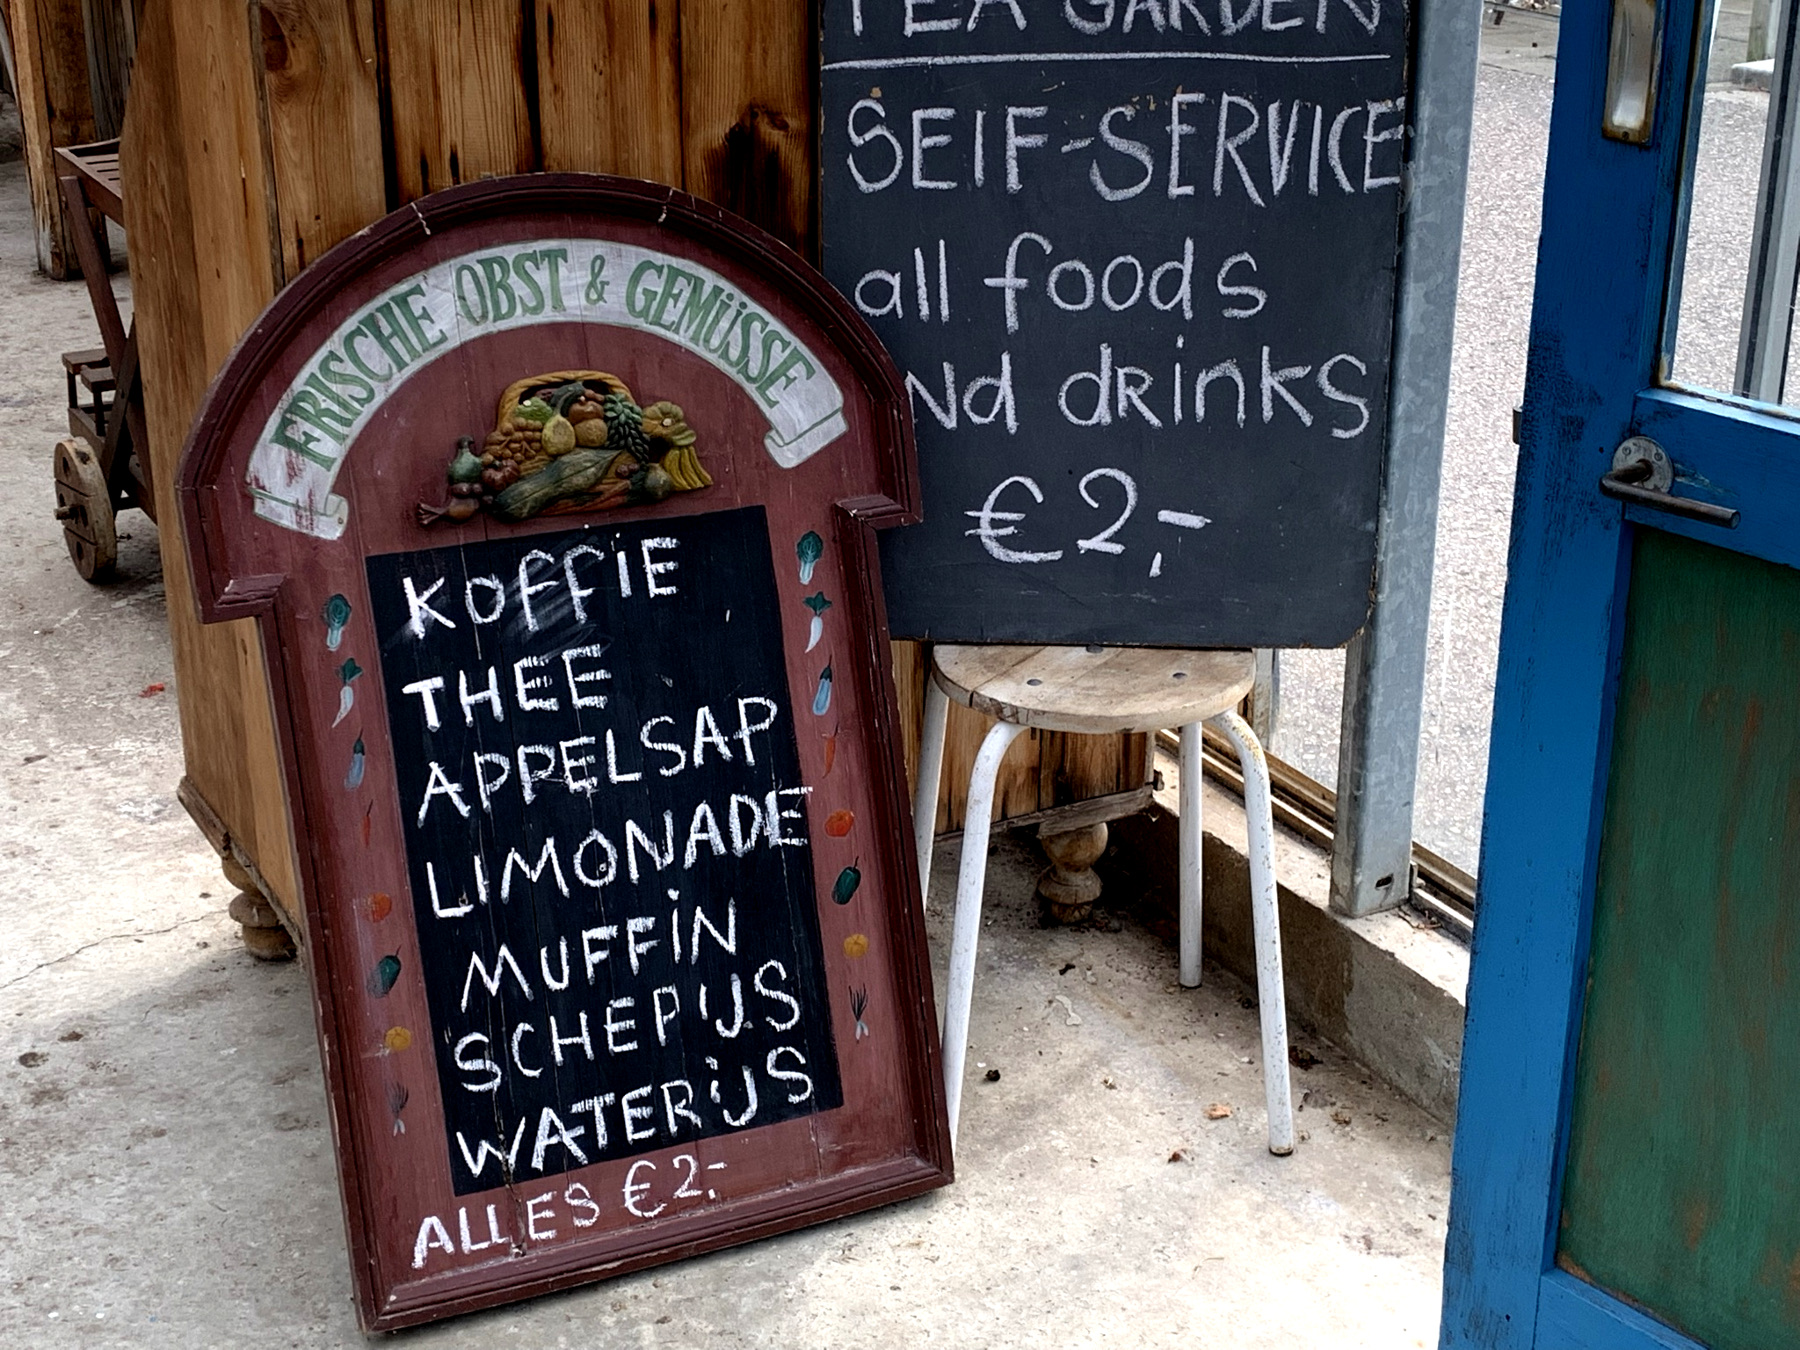 TEA GARDEN
SElF-SERVICE
all foods
and drinks
€2,-
FRISCHE OBST & GEMÜSSE
KOFFIE
THEE
APPELSAP
LIMONADE
MUFFIN
SCHEPIJS
WATERIJS
ALLES €2,-